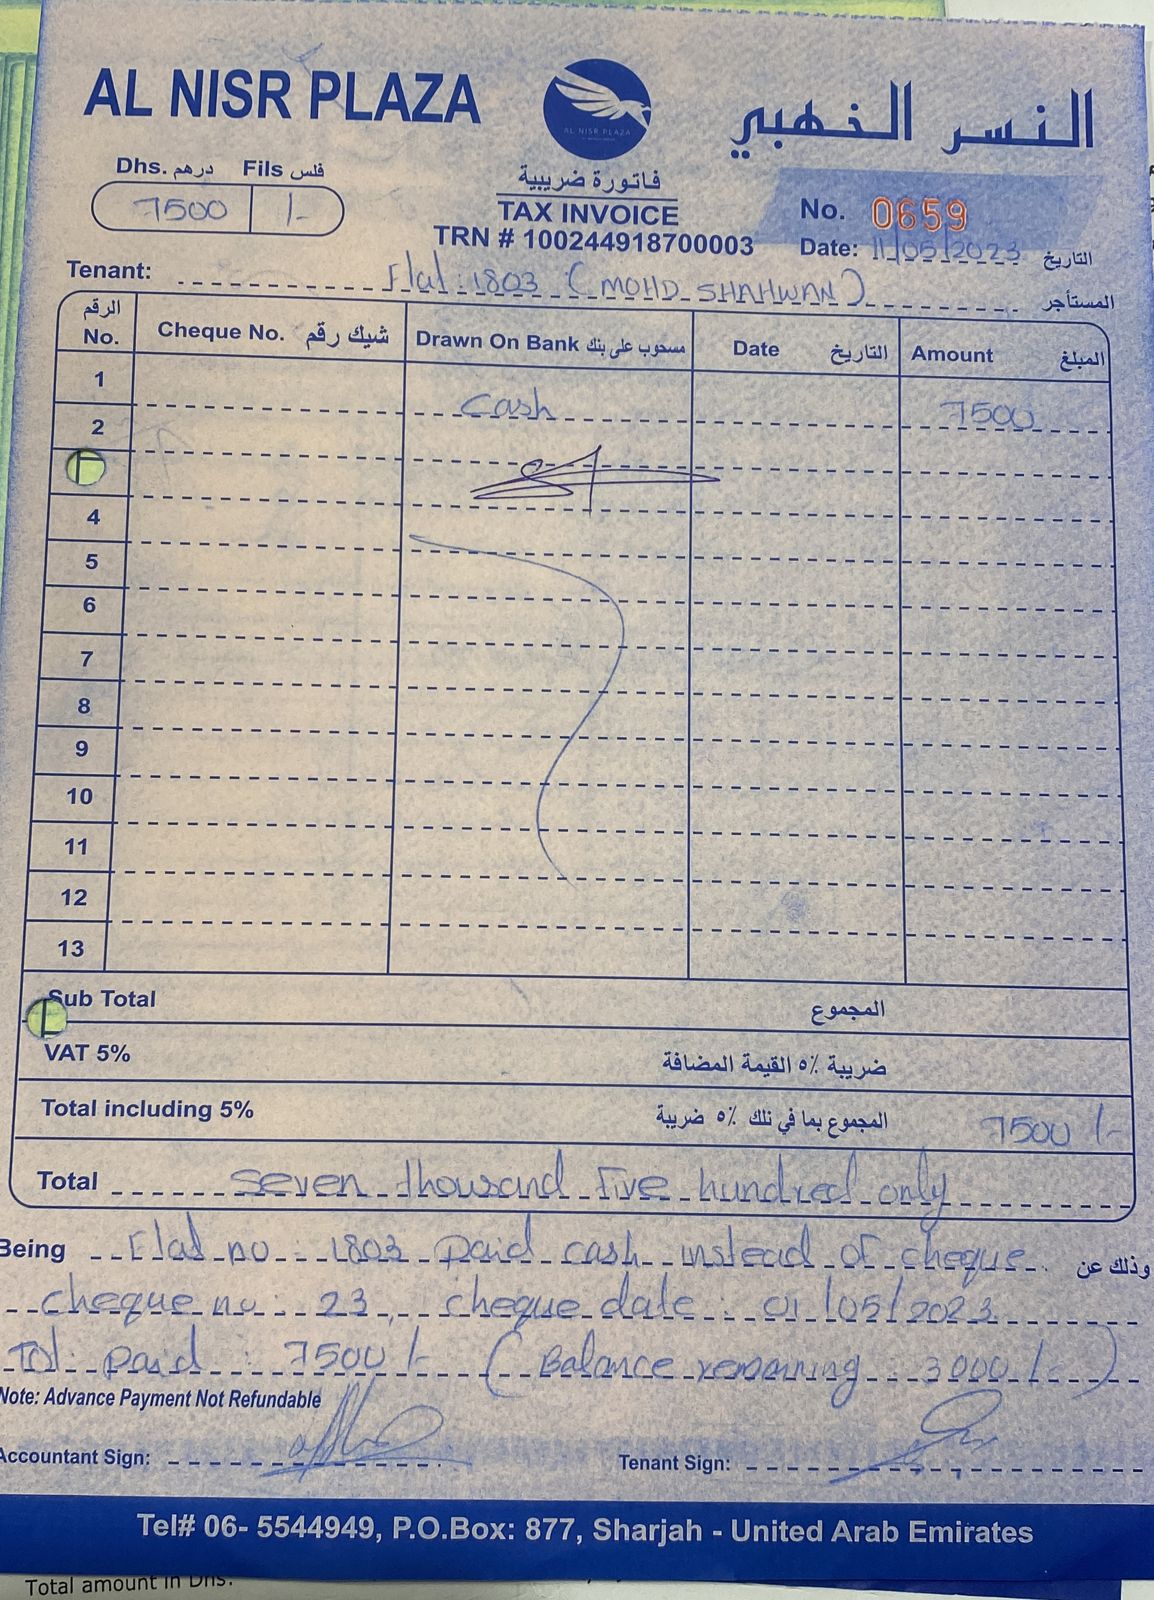 AL NISR PLAZA
النسر الذهبي
AL NISR PLAZA
Dhs. درهم Fils فلس
7500 /-
فاتورة ضريبية
TAX INVOICE
TRN # 100244918700003
No. 0659
Date: 11/05/2023 التاريخ
Tenant: Flat : 1803 (MOHD SHAHWAN) المستأجر
الرقم No. Cheque No. شيك رقم Drawn On Bank مسحوب على بنك Date التاريخ Amount المبلغ
1
Cash 7500
2
4
5
6
7
8
9
10
11
12
13
Sub Total المجموع
VAT 5% ضريبة ٥٪ القيمة المضافة
Total including 5% المجموع بما في ذلك ٥٪ ضريبة 7500 /-
Total Seven thousand Five hundred only
Being Flat no : 1803 paid cash instead of cheque. وذلك عن
cheque no : 23, cheque date : 01/05/2023
paid : 7500 /- (Balance remaining 3000 /-)
Note: Advance Payment Not Refundable
Accountant Sign:
Tenant Sign:
Tel# 06- 5544949, P.O.Box: 877, Sharjah - United Arab Emirates
Total amount in Dhs.